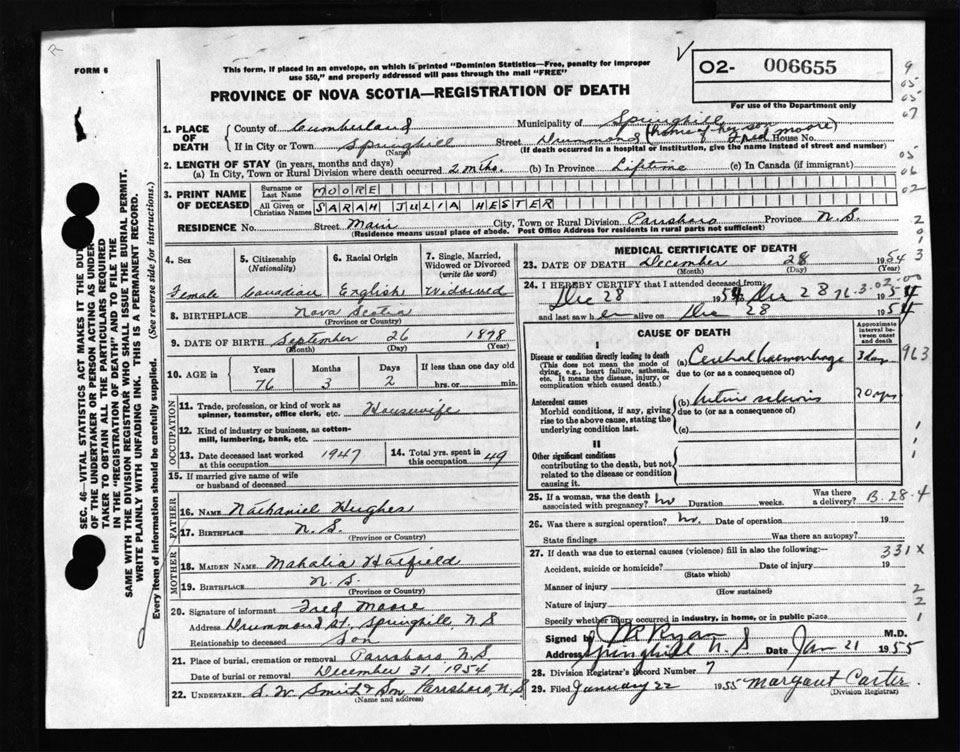 FORM 6
This form, if placed in an envelope, on which is printed "Dominion Statistics—Free, penalty for improper
use $50," and properly addressed will pass through the mail "FREE"
O2- 006655
For use of the Department only
PROVINCE OF NOVA SCOTIA—REGISTRATION OF DEATH
SEC. 46—VITAL STATISTICS ACT MAKES IT THE DUT
OF THE UNDERTAKER OR PERSON ACTING AS UNDER-
TAKER TO OBTAIN ALL THE PARTICULARS REQUIRED
IN THE "REGISTRATION OF DEATH" AND TO FILE THE
SAME WITH THE DIVISION REGISTRAR WHO SHALL ISSUE THE BURIAL PERMIT.
WRITE PLAINLY WITH UNFADING INK. THIS IS A PERMANENT RECORD.
Every item of information should be carefully supplied. (See reverse side for instructions.)
1. PLACE OF DEATH
County of Cumberland Municipality of Springhill
If in City or Town Springhill Street Drummond (home of her son Fred Moore) House No.
(Name) (If death occurred in a hospital or institution, give the name instead of street and number)
2. LENGTH OF STAY (in years, months and days)
(a) In City, Town or Rural Division where death occurred 2 mths. (b) In Province Lifetime (c) In Canada (if immigrant)
3. PRINT NAME OF DECEASED
Surname or Last Name MOORE
All Given or Christian Names SARAH JULIA HESTER
RESIDENCE No. Street Main City, Town or Rural Division Parrsboro Province N.S.
(Residence means usual place of abode. Post Office Address for residents in rural parts not sufficient)
4. Sex
Female
5. Citizenship
(Nationality)
Canadian
6. Racial Origin
English
7. Single, Married, Widowed or Divorced
(write the word)
Widowed
8. BIRTHPLACE Nova Scotia
(Province or Country)
9. DATE OF BIRTH September 26 1878
(Month) (Day) (Year)
10. AGE in Years Months Days If less than one day old
76 3 2 hrs. or min.
OCCUPATION
11. Trade, profession, or kind of work as
spinner, teamster, office clerk, etc. Housewife
12. Kind of industry or business, as cotton-
mill, lumbering, bank, etc.
13. Date deceased last worked
at this occupation 1947
14. Total yrs. spent in
this occupation 49
15. If married give name of wife
or husband of deceased
FATHER
16. NAME Nathaniel Hughes
17. BIRTHPLACE N.S.
(Province or Country)
MOTHER
18. MAIDEN NAME Mahalia Hatfield
19. BIRTHPLACE N.S.
(Province or Country)
20. Signature of informant Fred Moore
Address Drummond St. Springhill, N.S
Relationship to deceased Son
21. Place of burial, cremation or removal Parrsboro N.S.
Date of burial or removal December 31, 1954
22. UNDERTAKER S. W. Smith & Son, Parrsboro, N.S
(Name and address)
MEDICAL CERTIFICATE OF DEATH
23. DATE OF DEATH December 28 1954
(Month) (Day) (Year)
24. I HEREBY CERTIFY that I attended deceased from:
Dec 28 1954 to Dec 28 76.3.02 1954
and last saw her alive on Dec 28 1954
CAUSE OF DEATH
Approximate interval between onset and death
I
Disease or condition directly leading to death
(This does not mean the mode of dying, e.g., heart failure, asthenia, etc. It means the disease, injury, or complication which caused death.)
(a) Cerebral haemorrhage 3 days 963
due to (or as a consequence of)
Antecedent causes
Morbid conditions, if any, giving rise to the above cause, stating the underlying condition last.
(b) sclerosis 20 yrs
due to (or as a consequence of)
(c)
II
Other significant conditions
contributing to the death, but not related to the disease or condition causing it.
25. If a woman, was the death
associated with pregnancy? no Duration weeks. Was there a delivery? B.28.4
26. Was there a surgical operation? no. Date of operation 19
State findings Was there an autopsy?
27. If death was due to external causes (violence) fill in also the following:— 331X
Accident, suicide or homicide? Date of injury 19
(State which)
Manner of injury
(How sustained)
Nature of injury
Specify whether injury occurred in industry, in home, or in public place
Signed by Ryan M.D.
Address Springhill N S Date Jan 21 1955
28. Division Registrar's Record Number 7
29. Filed January 22 1955 Margaret Carter
(Division Registrar)